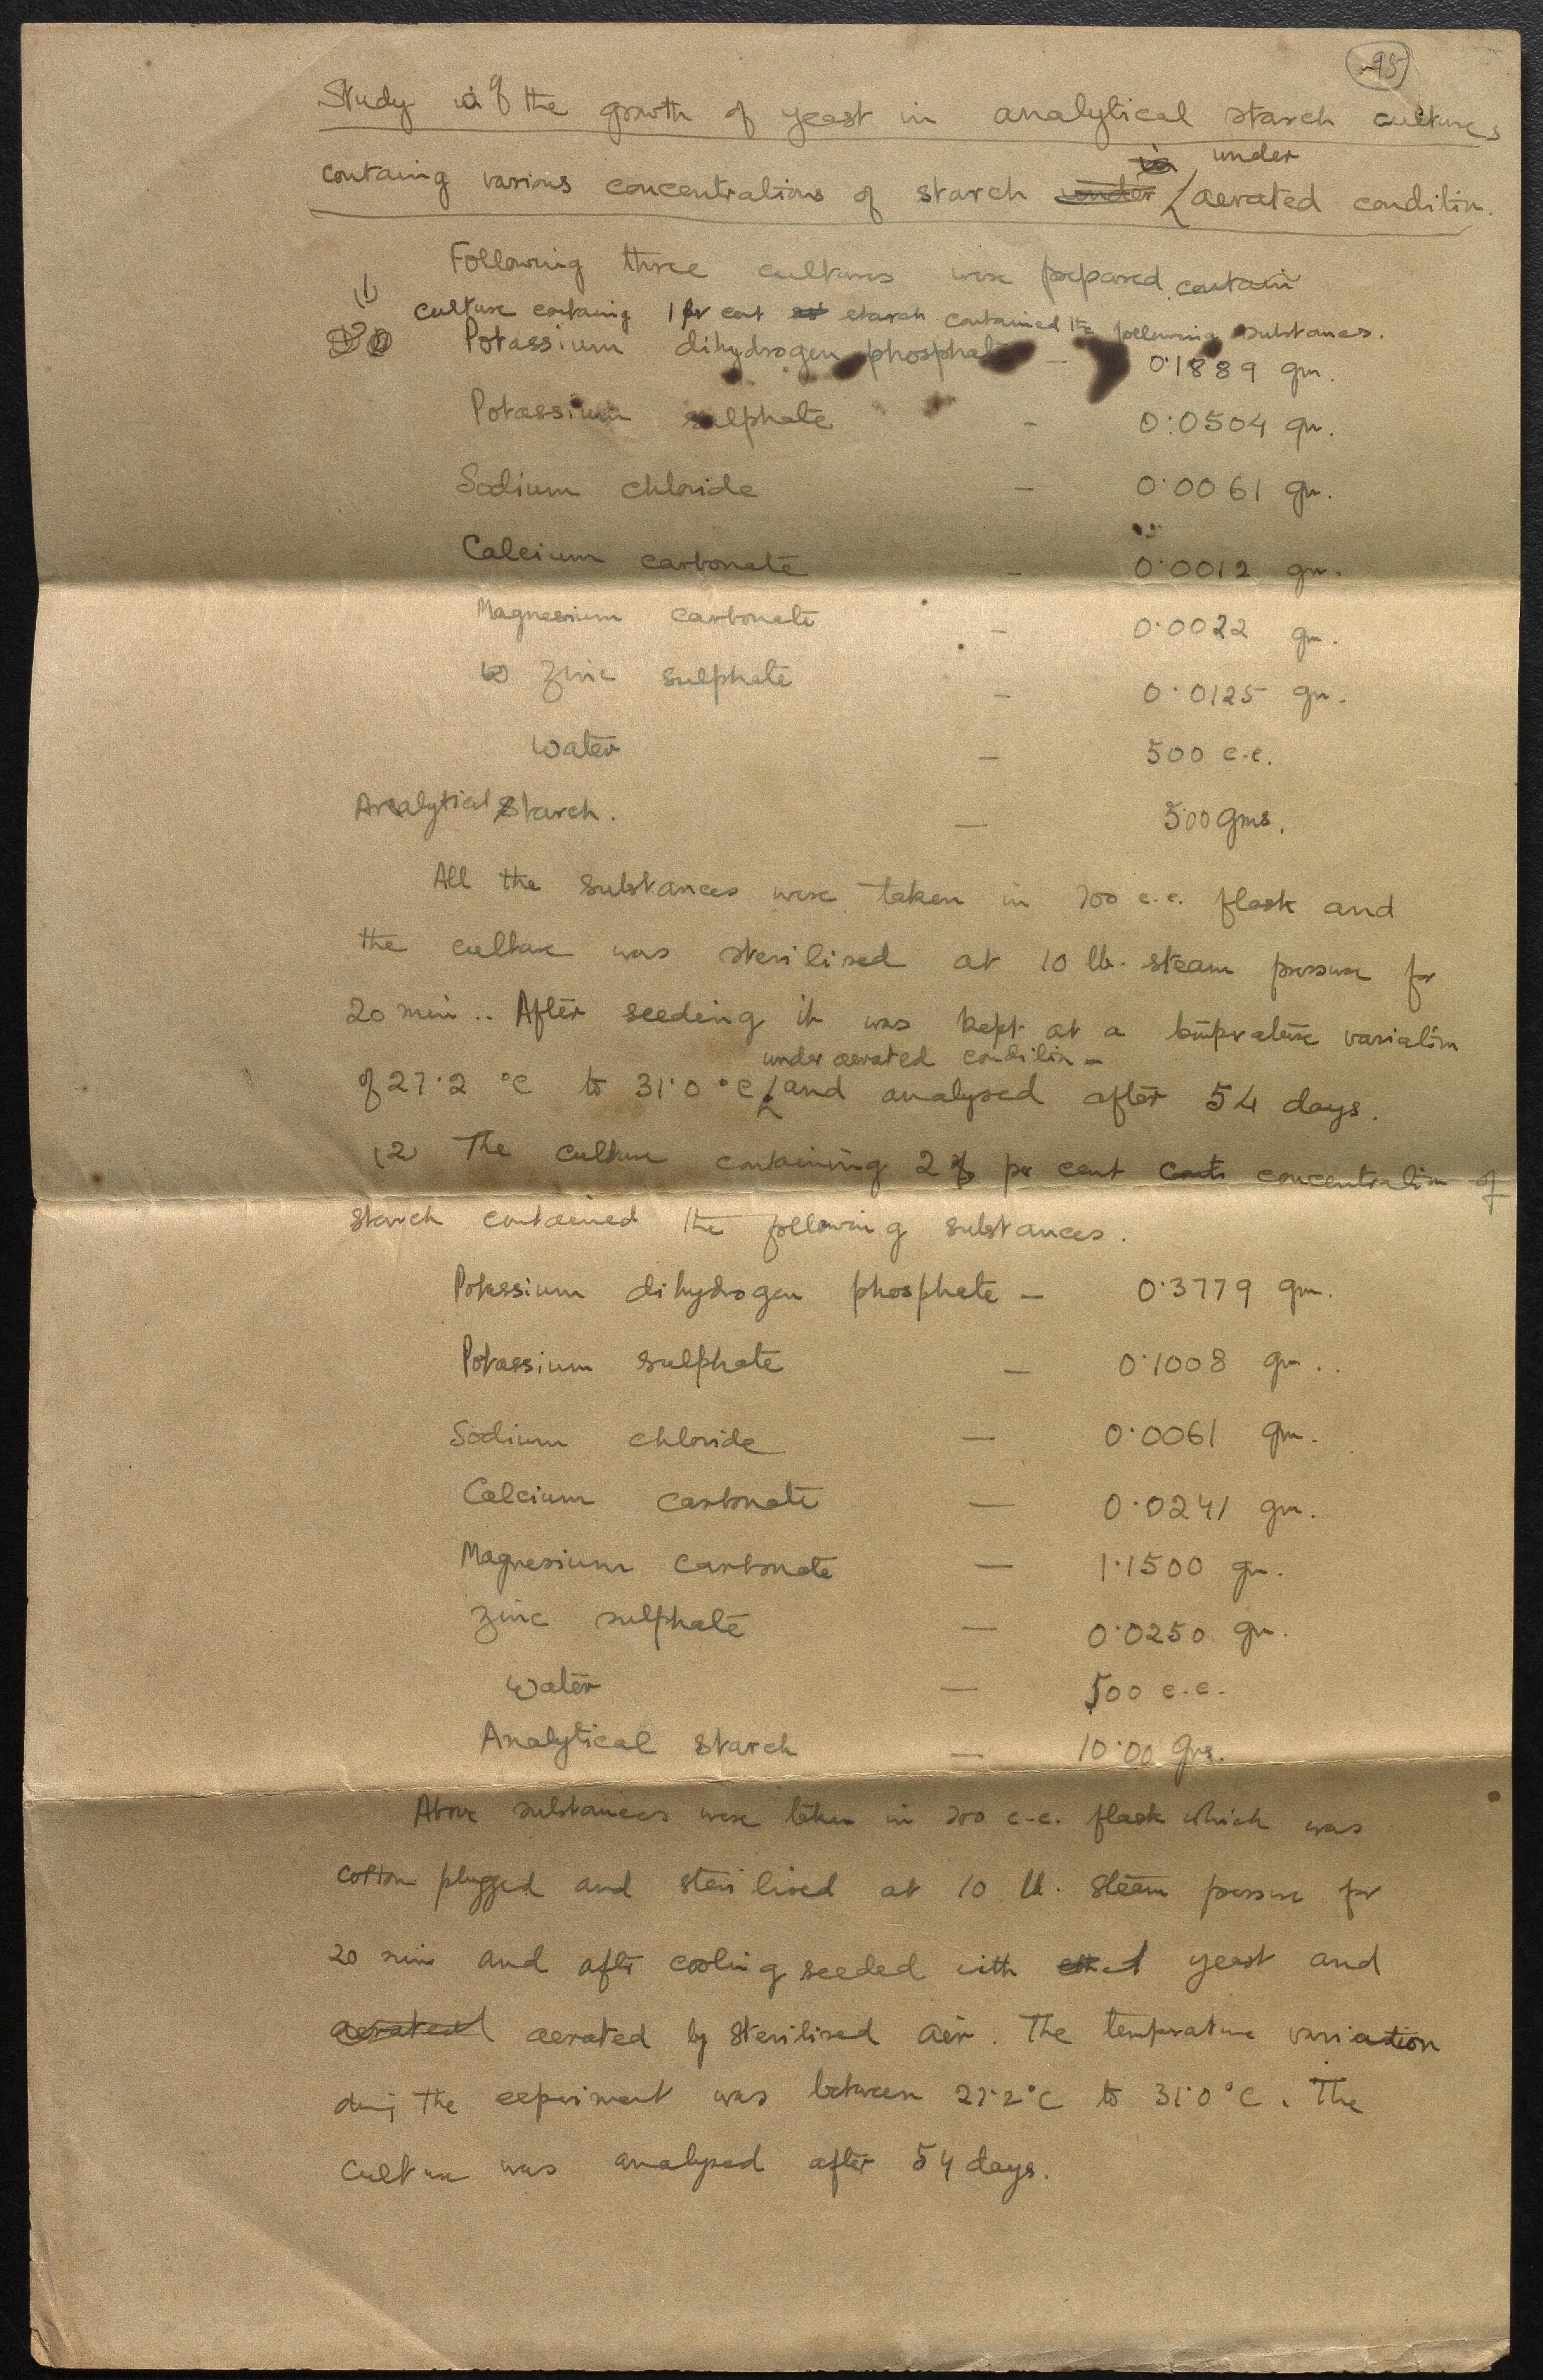 95
Study of the growth of yeast in analytical starch cultures
under
containg various concentrations of starch under aerated condition.
Following three cultures were prepared contain
(1) culture containg 1 per cent starch contained the following substances.
Potassium dihydrogen phosphate — 0.1889 gm.
Potassium sulphate — 0.0504 gm.
Sodium chloride — 0.0061 gm.
Calcium carbonate — 0.0012 gm.
Magnesium carbonate — 0.0022 gm.
Zinc sulphate — 0.0125 gm.
Water — 500 c.c.
Analytical Starch. — 5.00 gms.
All the substances were taken in 700 c.c. flask and
the culture was sterilised at 10 lb. steam pressure for
20 min.. After seeding it was kept at a temprature variation
under aerated condition
of 27.2 °C to 31.0 °C and analysed after 54 days.
(2) The culture containing 2 per cent conc concentration of
starch contained the following substances.
Potassium dihydrogen phosphate — 0.3779 gm.
Potassium sulphate — 0.1008 gm..
Sodium chloride — 0.0061 gm.
Calcium carbonate — 0.0241 gm.
Magnesium carbonate — 1.1500 gm.
Zinc sulphate — 0.0250 gm.
Water — 500 c.c.
Analytical starch — 10.00 gms.
Above substances were taken in 700 c.c. flask which was
cotton plugged and sterilised at 10 lb. steam pressure for
20 min and after cooling seeded with yeast and
aerated aerated by sterilised air. The temprature variation
during the experiment was between 27.2°C to 31.0°C. The
culture was analysed after 54 days.